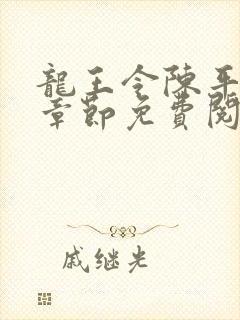 龍王令陳平
章節免費閱
戚继光